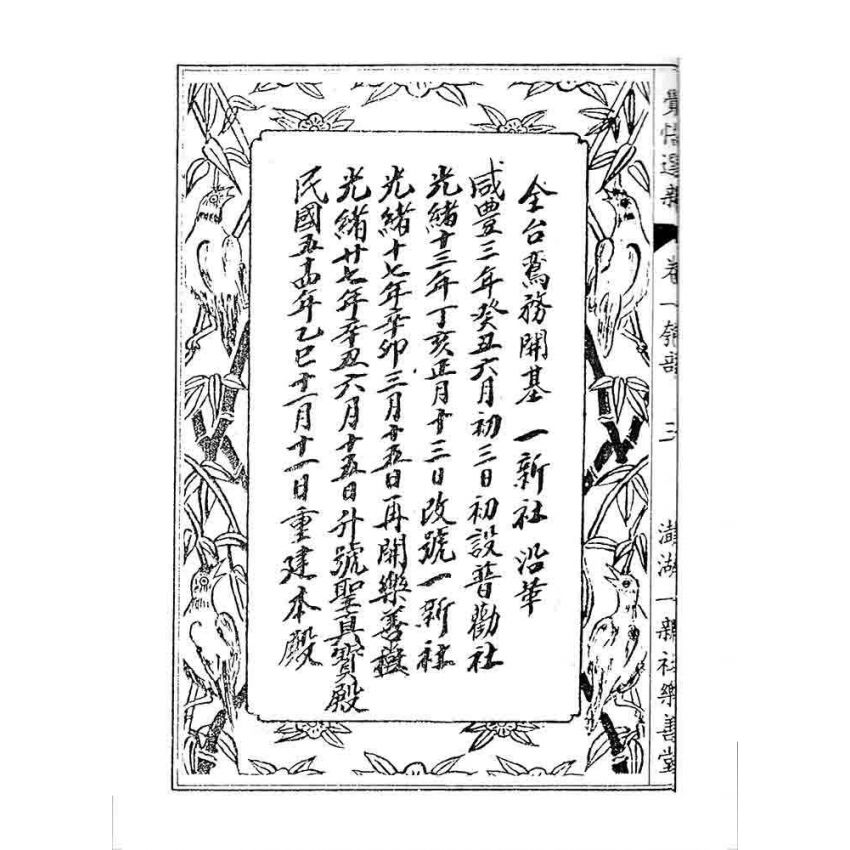 覺悟選新 卷一 匏部 二 澎湖一新社樂善堂
全台鸞務開基一新社沿革
咸豐三年癸丑六月初三日初設普勸社
光緒十三年丁亥正月十三日改號一新社
光緒十七年辛卯三月十五日再開樂善堂
光緒廿七年辛丑六月十五日升號聖真寶殿
民國五十四年乙巳十一月十一日重建本殿